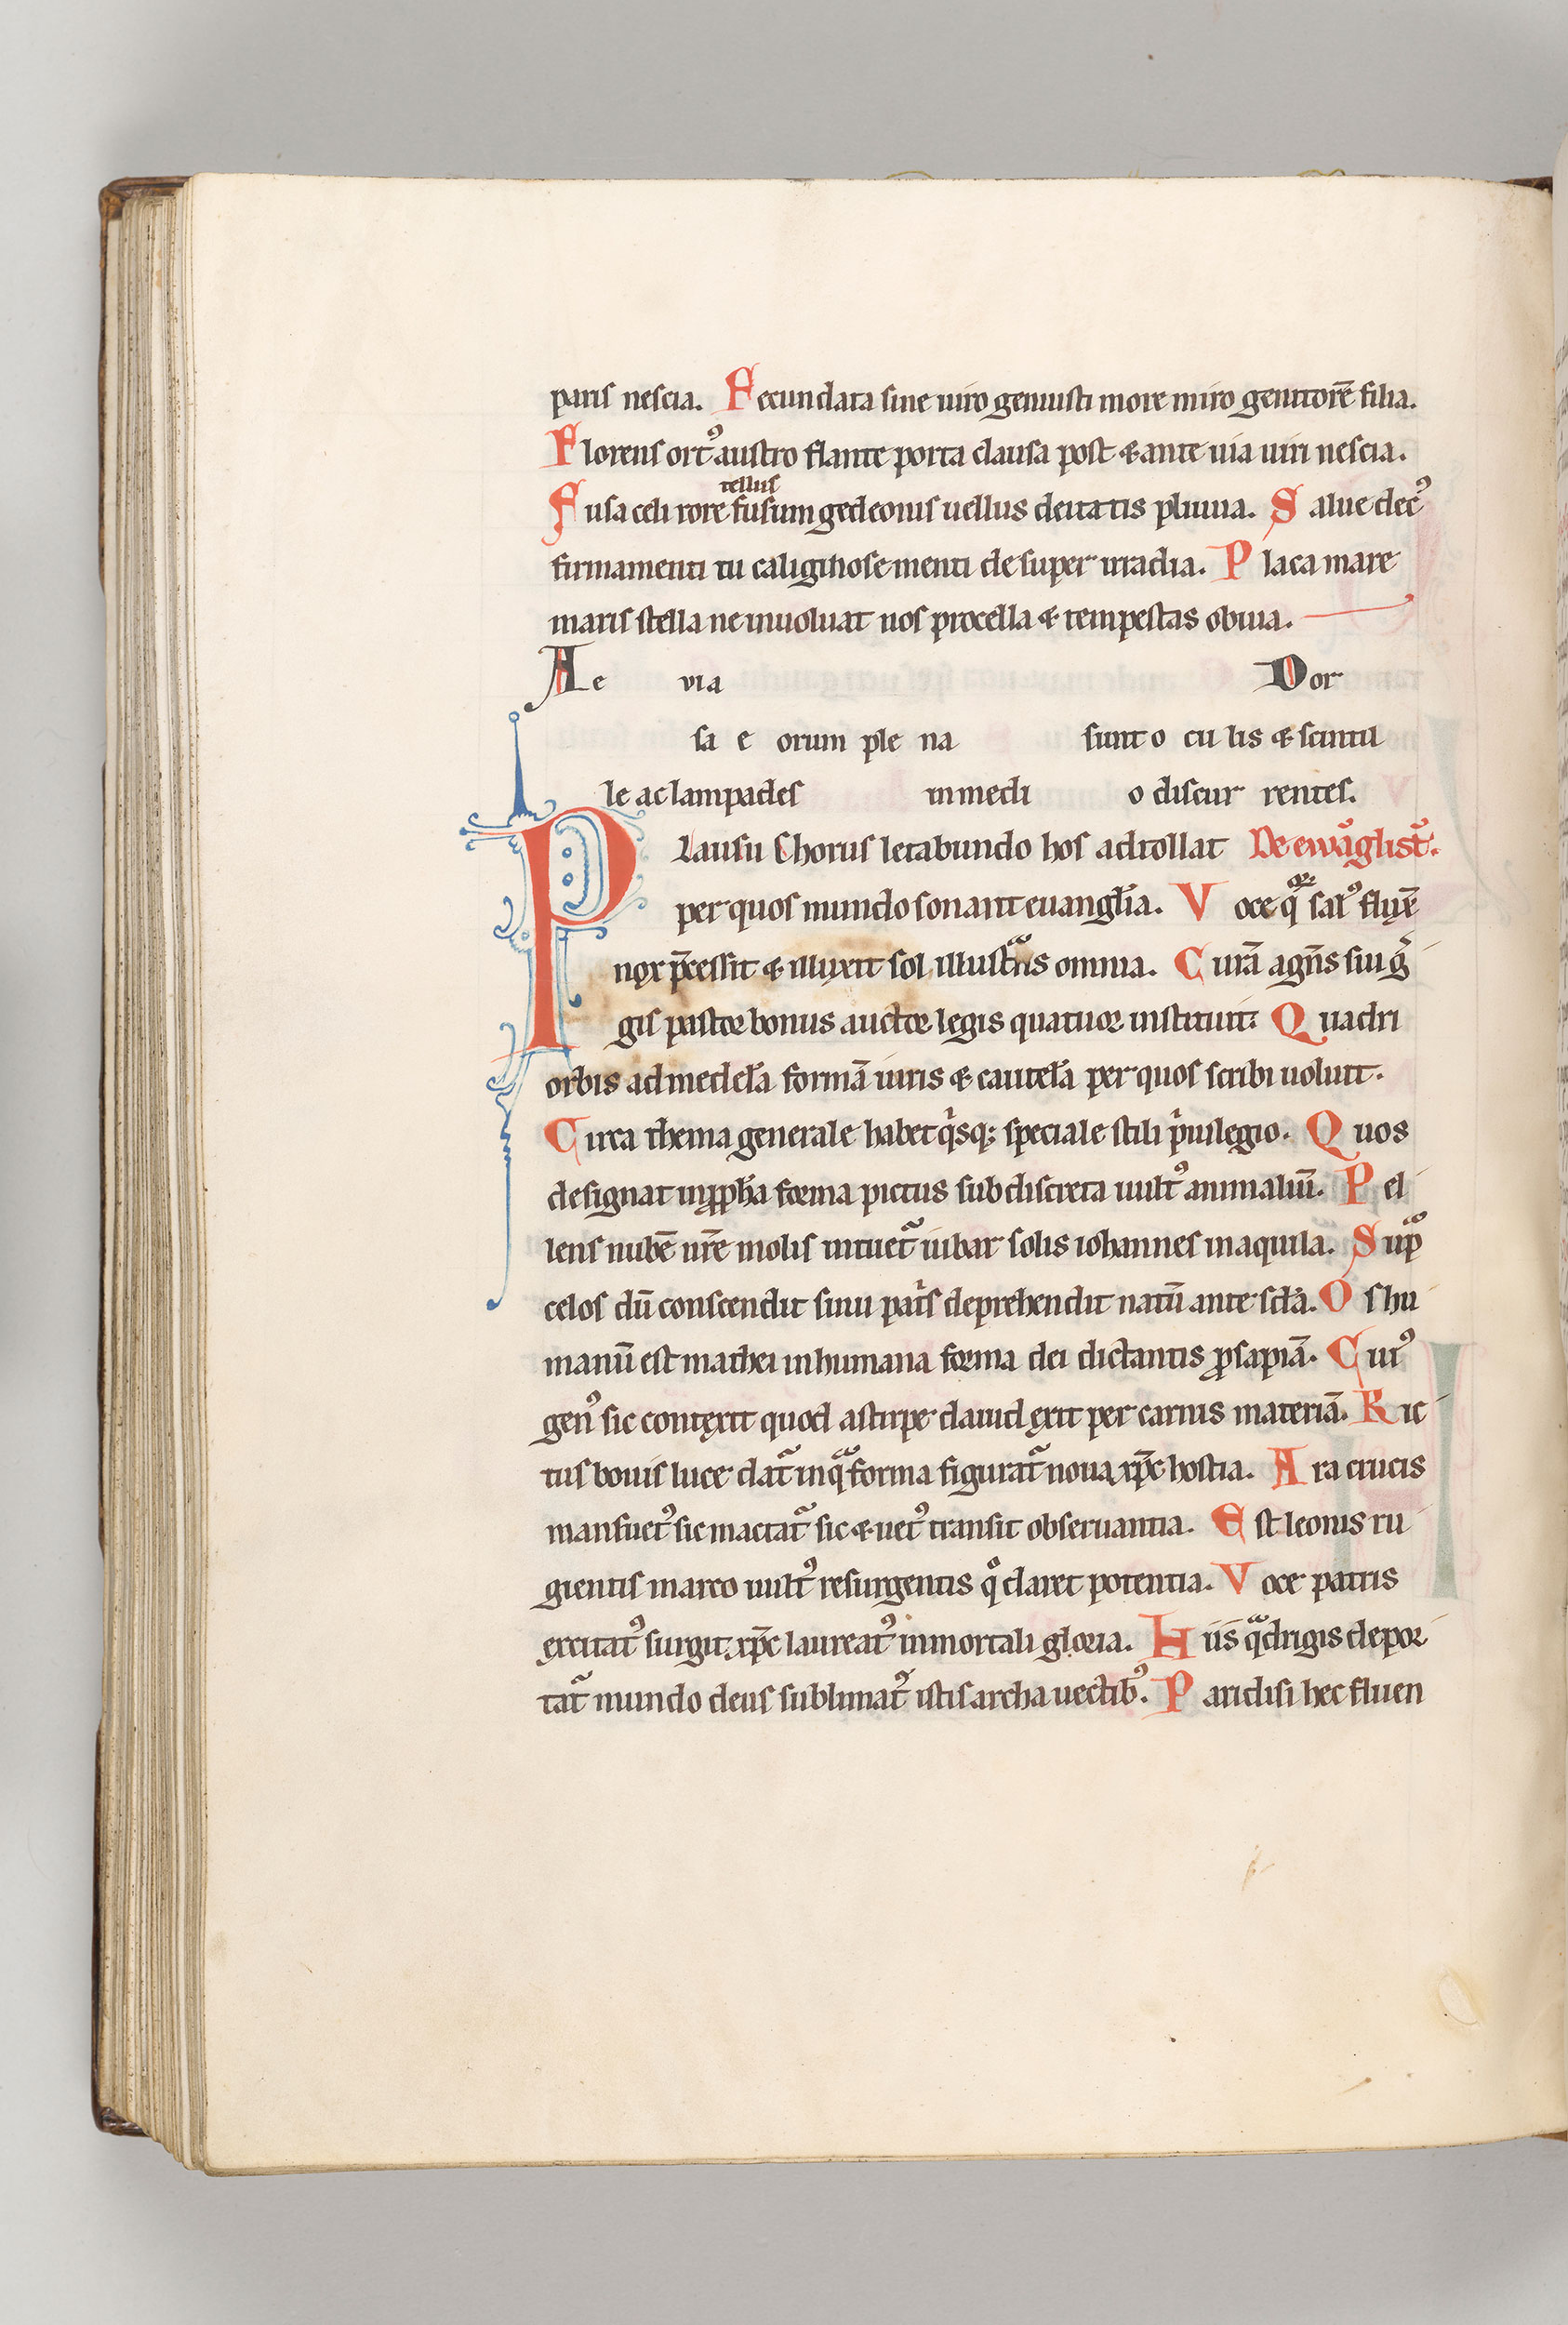 paris nescia. Fecundata sine uiro genuisti more miro genitorē filia.
Florens ortꝰ austro flante porta clausa post & ante uia uiri nescia.
tellus
Fusa celi rore fusum gedeonis uellus deitatis pluuia. Salue decꝰ
firmamenti tu caliginose menti desuper irradia. Placa mare
maris stella ne inuoluat nos procella & tempestas obuia.
Ae via Dor
sa e orum ple na sunt o cu lis & scintil
le ac lampades in medi o discur rentes.
Plausu Chorus letabundo hos adtollat De ewāglistꝭ.
per quos mundo sonant euangl̄ia. Voce qͣꝝ salꝰ fluxē
nox p̄cessit & illuxit sol illustͣns omnia. Curā agēns sui gͤ
gis pastor bonus auctor legis quatuor instituit. Quadri
orbis ad medelā formā iuris & cautelā per quos scribi uoluit.
Circa thema generale habet qͥsqꝫ speciale stili pͥuilegio. Quos
designat in ꝓph̄a forma pictus sub discreta uultꝰ animaliū. Pel
lens nubē nr̄e molis intuetᷓ iubar solis iohannes in aquila. Supͣ
celos dū conscendit sinu patͥs deprehendit natū ante scl̄a. Os hu
manū est mathei in humana forma dei dictantis ꝓsapiā. Cuiꝰ
genꝰ sic contexit quod a stirpe dauid exit per carnis materiā. Ric
tus bouis luce datᷓ in qͣ forma figuratᷓ noua xp̄c hostia. Ara crucis
mansuetꝰ sic mactatᷓ sic & uetꝰ transit obseruantia. Est leonis ru
gientis marco uultꝰ resurgentis qͦ claret potentia. Voce patris
excitatꝰ surgit xp̄c laureatꝰ inmortali gloria. Hiis qͣdrigis depor
tatᷓ mundo deus sublimatᷓ istis archa uectibꝰ. Paridisi hec fluen